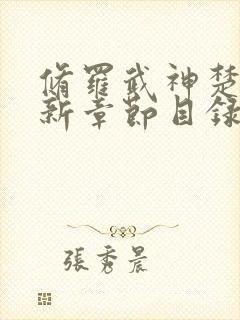 脩羅武神楚
新章節目録
張秀晨